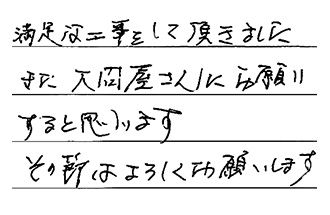 満足な工事をして頂きました
また 屋さんにお願い
すると思います
その節はよろしくお願いします